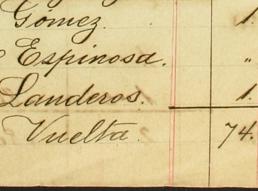 Gómez. 1.
Espinosa. "
Landeros. 1.
Vuelta. 74.